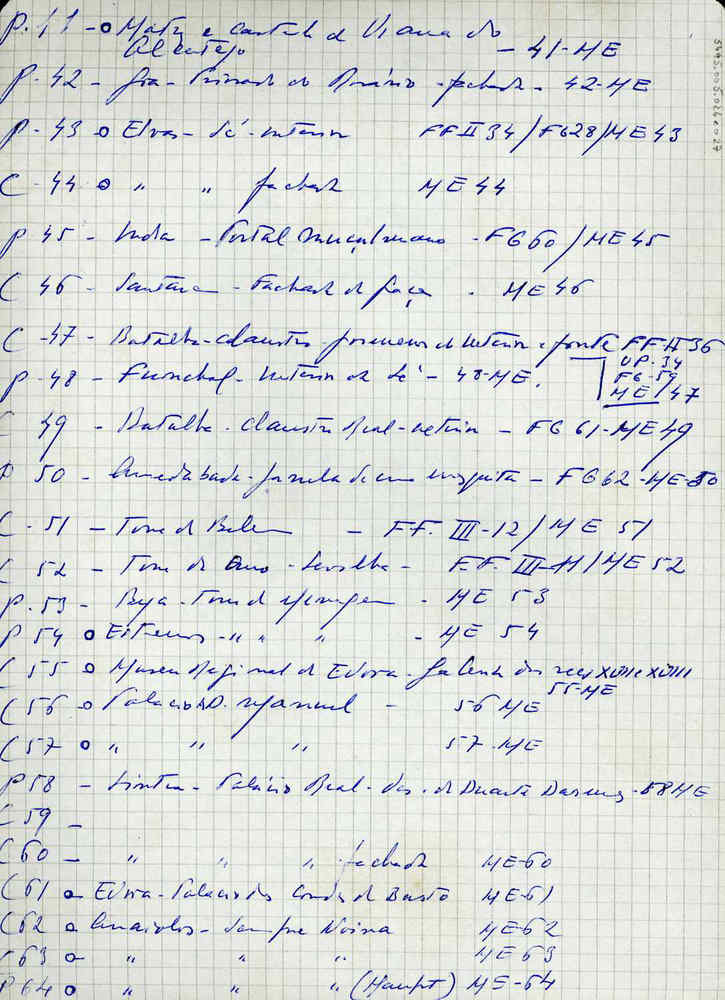 P. 41 - o Matriz e castelo de Viana do
Alentejo - 41-ME
P. 42 - Goa - Primado do Rosário - fachada - 42-ME
P. 43 o Elvas - Sé - interior FF II 34 / FG28 / ME 43
C - 44 o " " fachada ME 44
P 45 - India - Portal muçulmano - FG 60 / ME 45
C 46 - Santarém - Fachada da Graça . ME 46
C - 47 - Batalha - claustro - pormenor do interior e fonte FF II 36
UP - 34
FG - 59
ME / 47
P - 48 - Funchal - interior da Sé - 48-ME.
C 49 - Batalha - claustro Real - interior - FG 61 - ME 49
P 50 - Amedabada - janela de uma mesquita - FG 62 - ME - 50
C - 51 - Torre de Belem - FF. III - 12 / ME 51
C 52 - Torre do Ouro - Sevilha - F.F. III - 11 / ME 52
P. 53 - Beja - Torre de Menagem - ME 53
P 54 o Estremoz - " " " - ME 54
C 55 o Museu Regional de Evora - Galeria dos XVII e XVIII
55-ME
C 56 o Palacio D. Manuel - 56 ME
C 57 o " " " 57-ME
P 58 - Sintra - Palácio Real - Des. de Duarte Darmas - 58 ME
C 59 -
C 60 - " " " fachada ME-60
C 61 o Evora - Palacio dos Condes de Basto ME-61
C 62 o Arraiolos - Sempre Noiva ME-62
C 63 o " " " ME 63
P 64 o " " " (Haupt) ME - 64